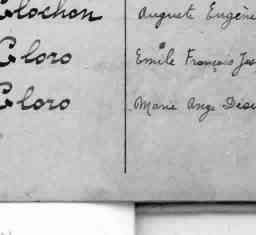 Clochon Auguste Eugène
Gloro Emile François
Gloro Marie Ange